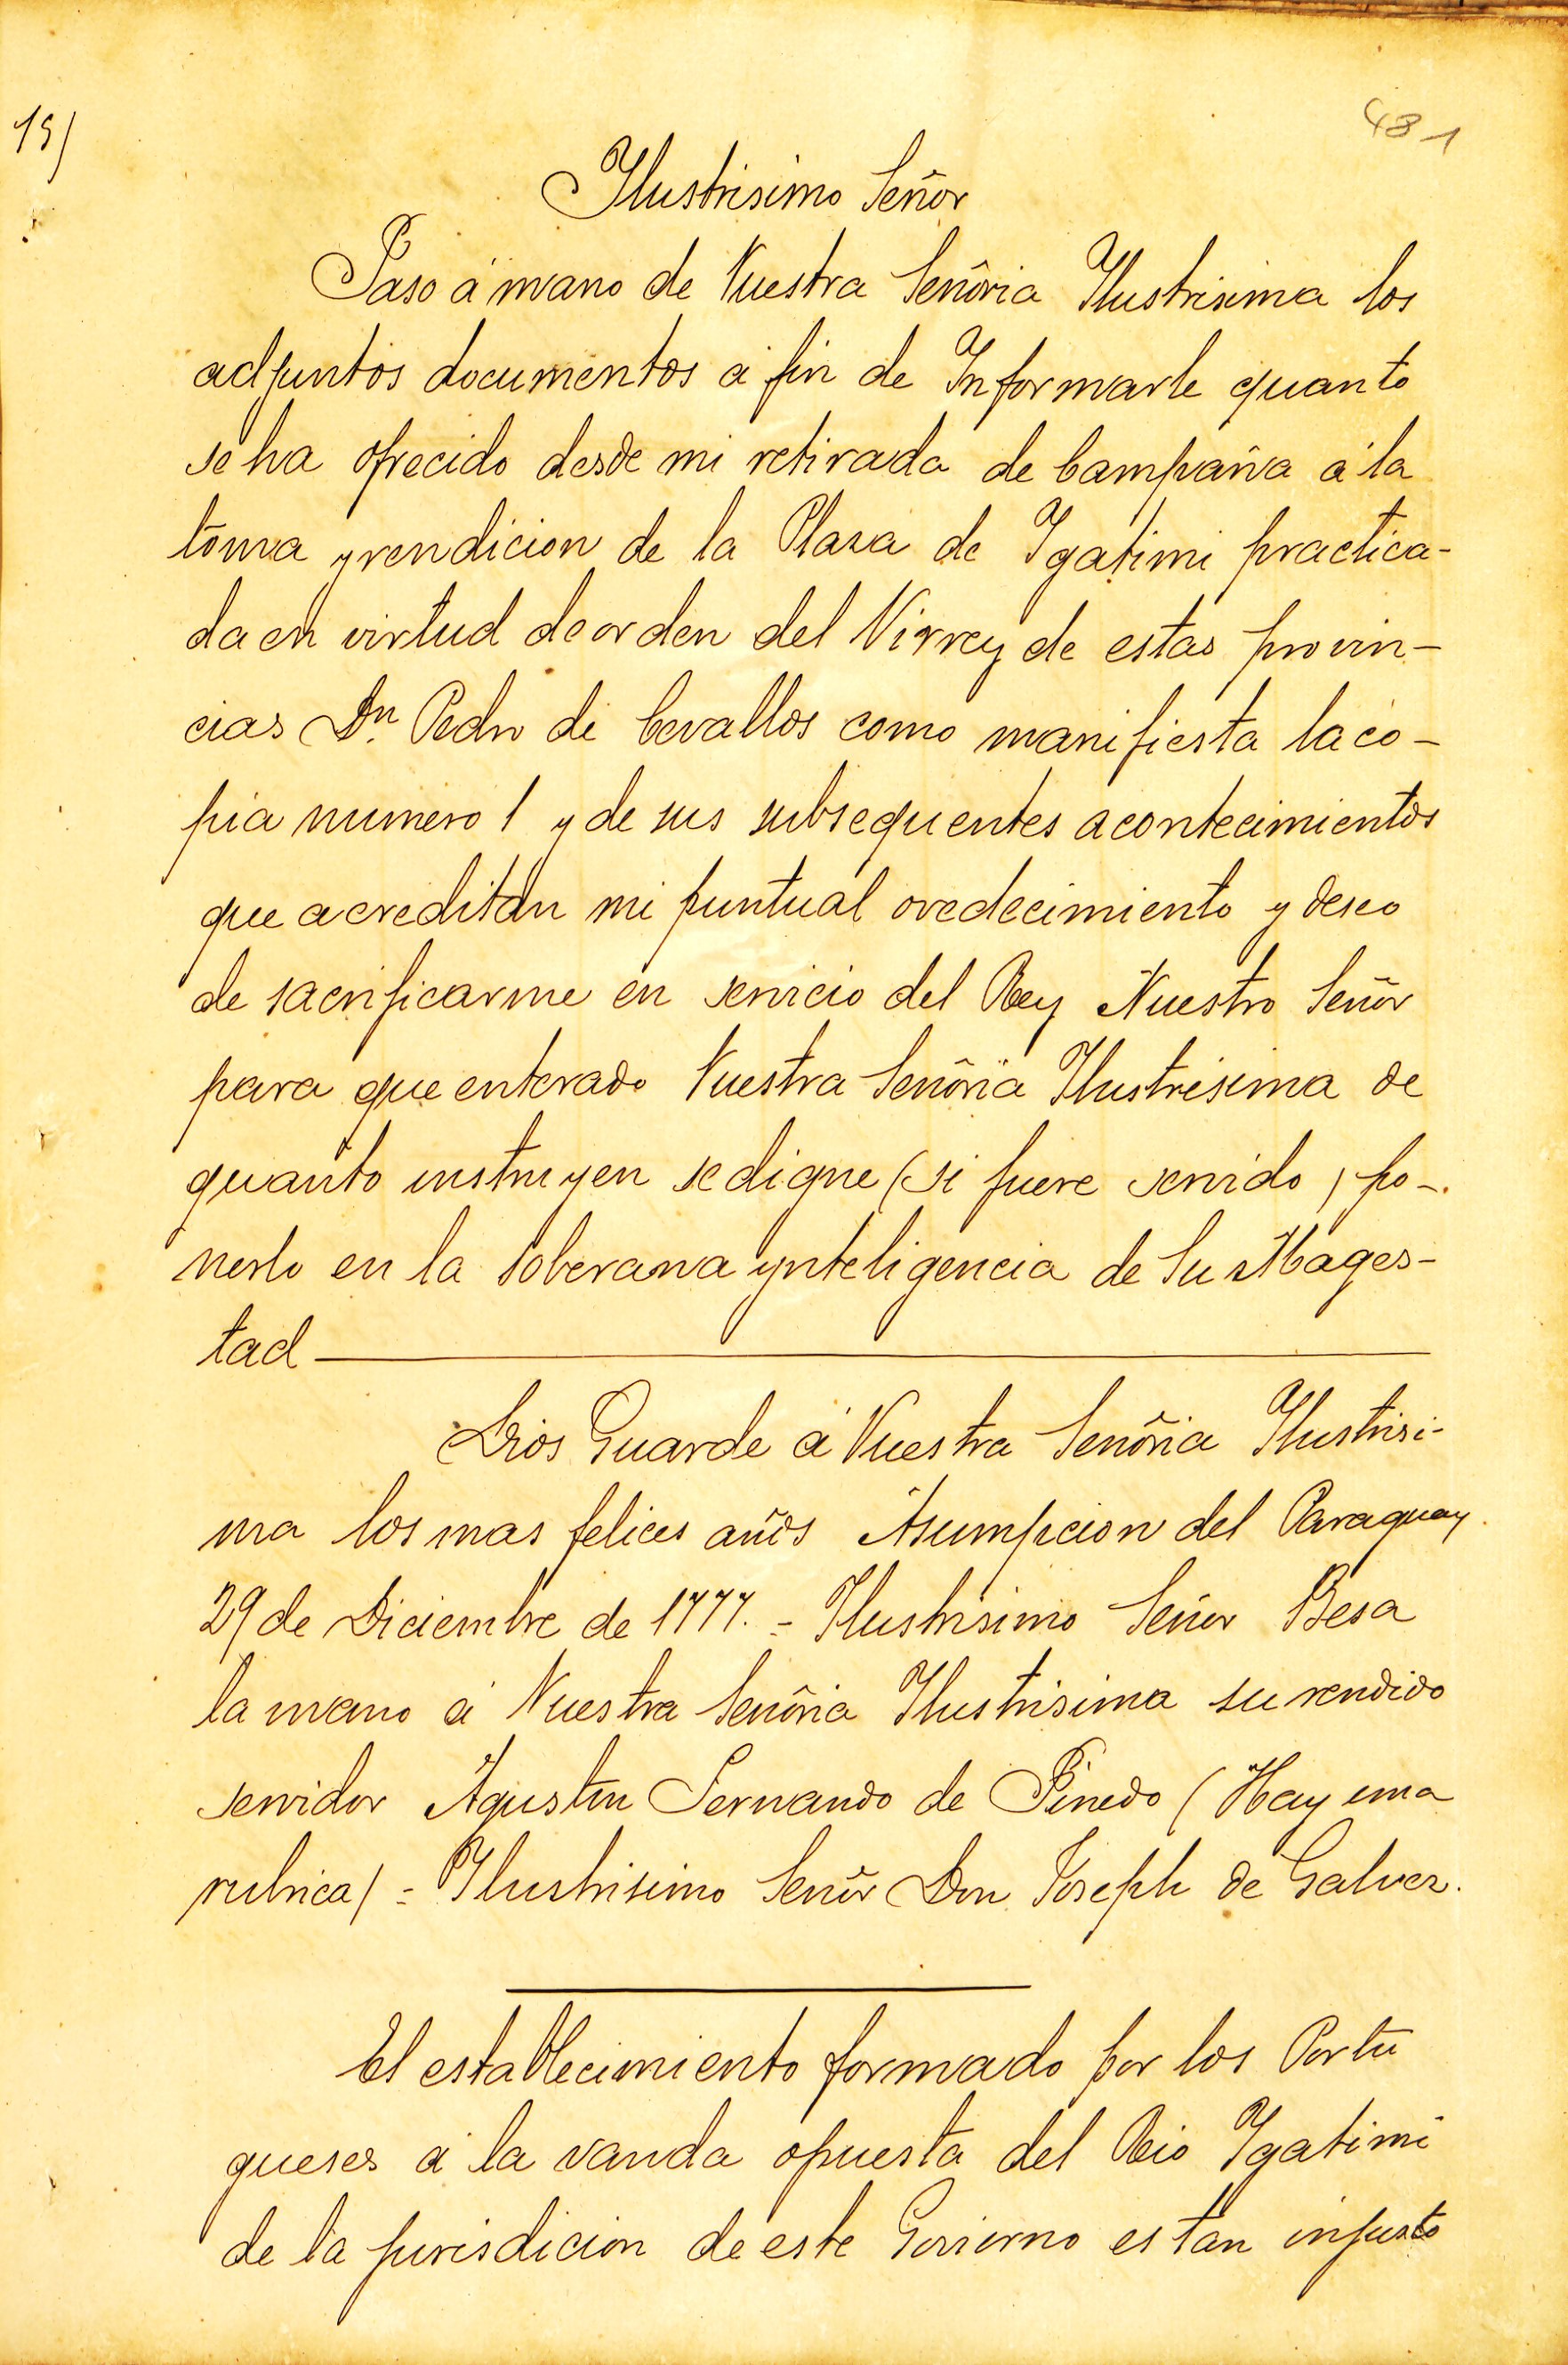 15/
431
Ilustrisimo Señor
Paso á mano de Vuestra Señoria Ilustrisima los
adjuntos documentos á fin de Informarle quanto
se ha ofrecido desde mi retirada de Campaña á la
toma y rendicion de la Plaza de Igatimi practica-
da en virtud de orden del Virrey de estas provin-
cias Dn. Pedro de Cevallos como manifiesta la co-
pia numero 1 y de sus subsequentes acontecimientos
que acreditan mi puntual ovedecimiento y deseo
de sacrificarme en servicio del Rey Nuestro Señor
para que enterado Vuestra Señoria Ilustrisima de
quanto instruyen se digne (si fuere servido) po-
nerlo en la soberana ynteligencia de Su Mages-
tad
Dios Guarde á Vuestra Señoria Ilustrisi-
ma los mas felices años Asumpcion del Paraguay
29 de Diciembre de 1777. - Ilustrisimo Señor Besa
la mano á Vuestra Señoria Ilustrisima su rendido
servidor Agustin Fernando de Pinedo (Hay una
rubrica) = Ilustrisimo Señor Don Joseph de Galvez.
El establecimiento formado por los Portu
gueses á la vanda opuesta del Rio Igatimi
de la jurisdicion de este Govierno es tan injusto